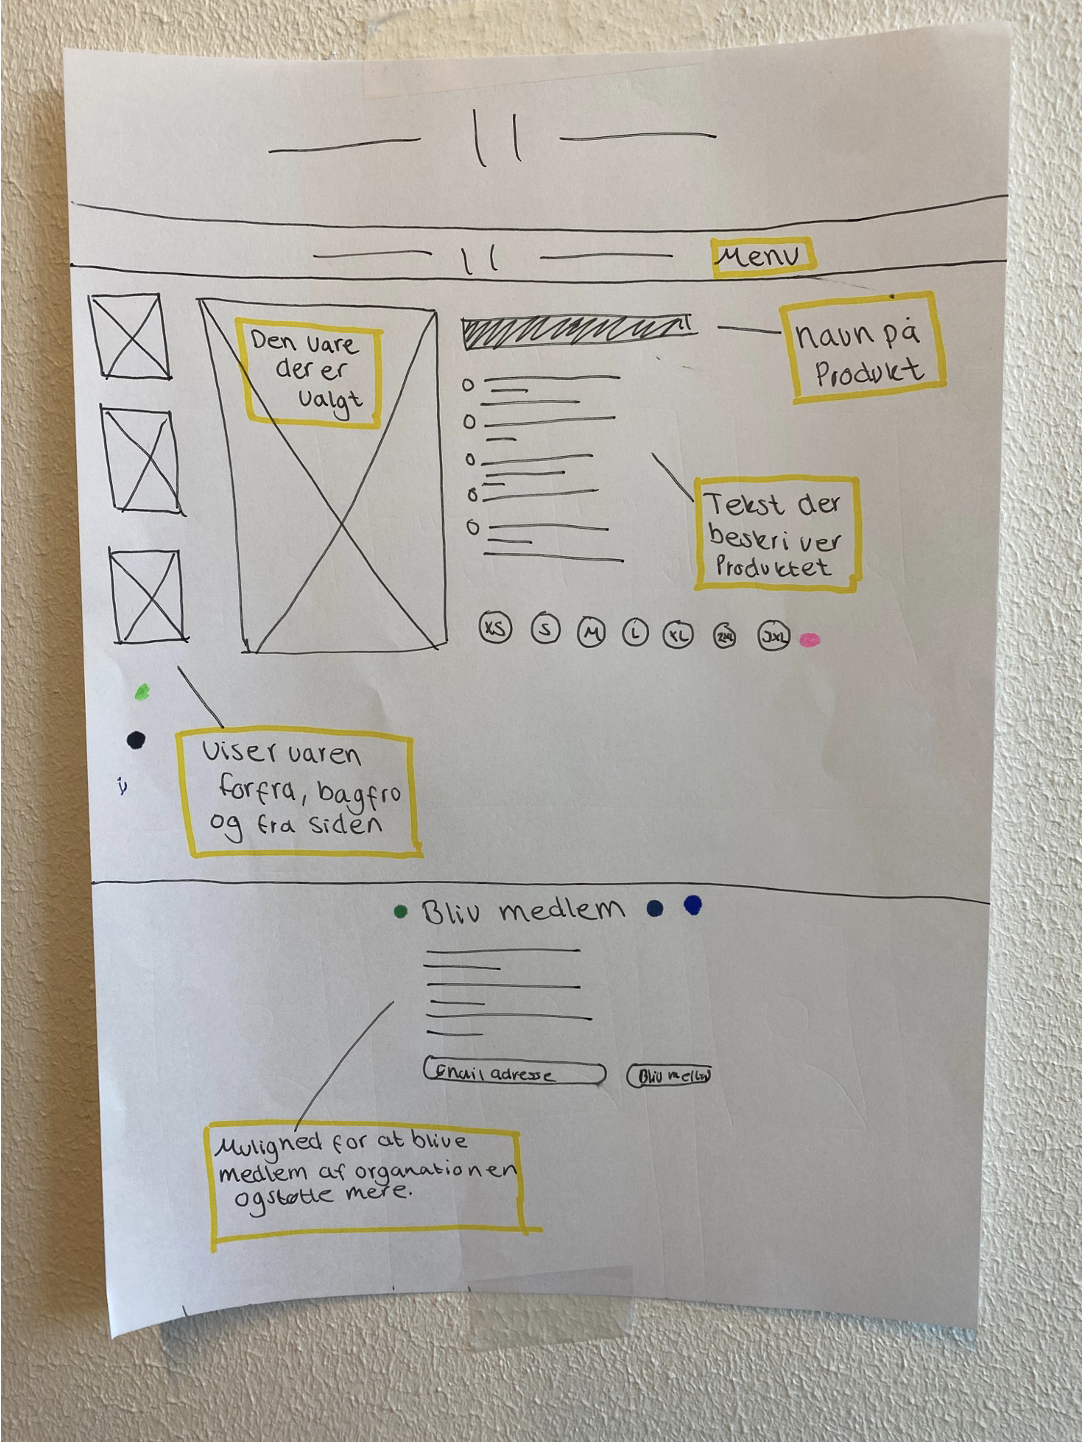 Menu
Den vare
der er
valgt
Navn på
Produkt
Tekst der
beskriver
Produktet
XS S M L XL 2XL 3XL
Viser varen
forfra, bagfra
og fra siden
Bliv medlem
Email adresse
Bliv medlem
Mulighed for at blive
medlem af organationen
og støtte mere.